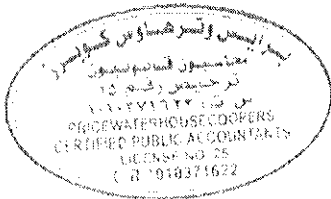 برايس وترهاوس كوبرز
محاسبون قانونيون
ترخيص رقم ٢٥
س ت: ١٠١٠٣٧١٦٢٢
PRICEWATERHOUSECOOPERS
CERTIFIED PUBLIC ACCOUNTANTS
LICENSE NO. 25
C.R. 1010371622